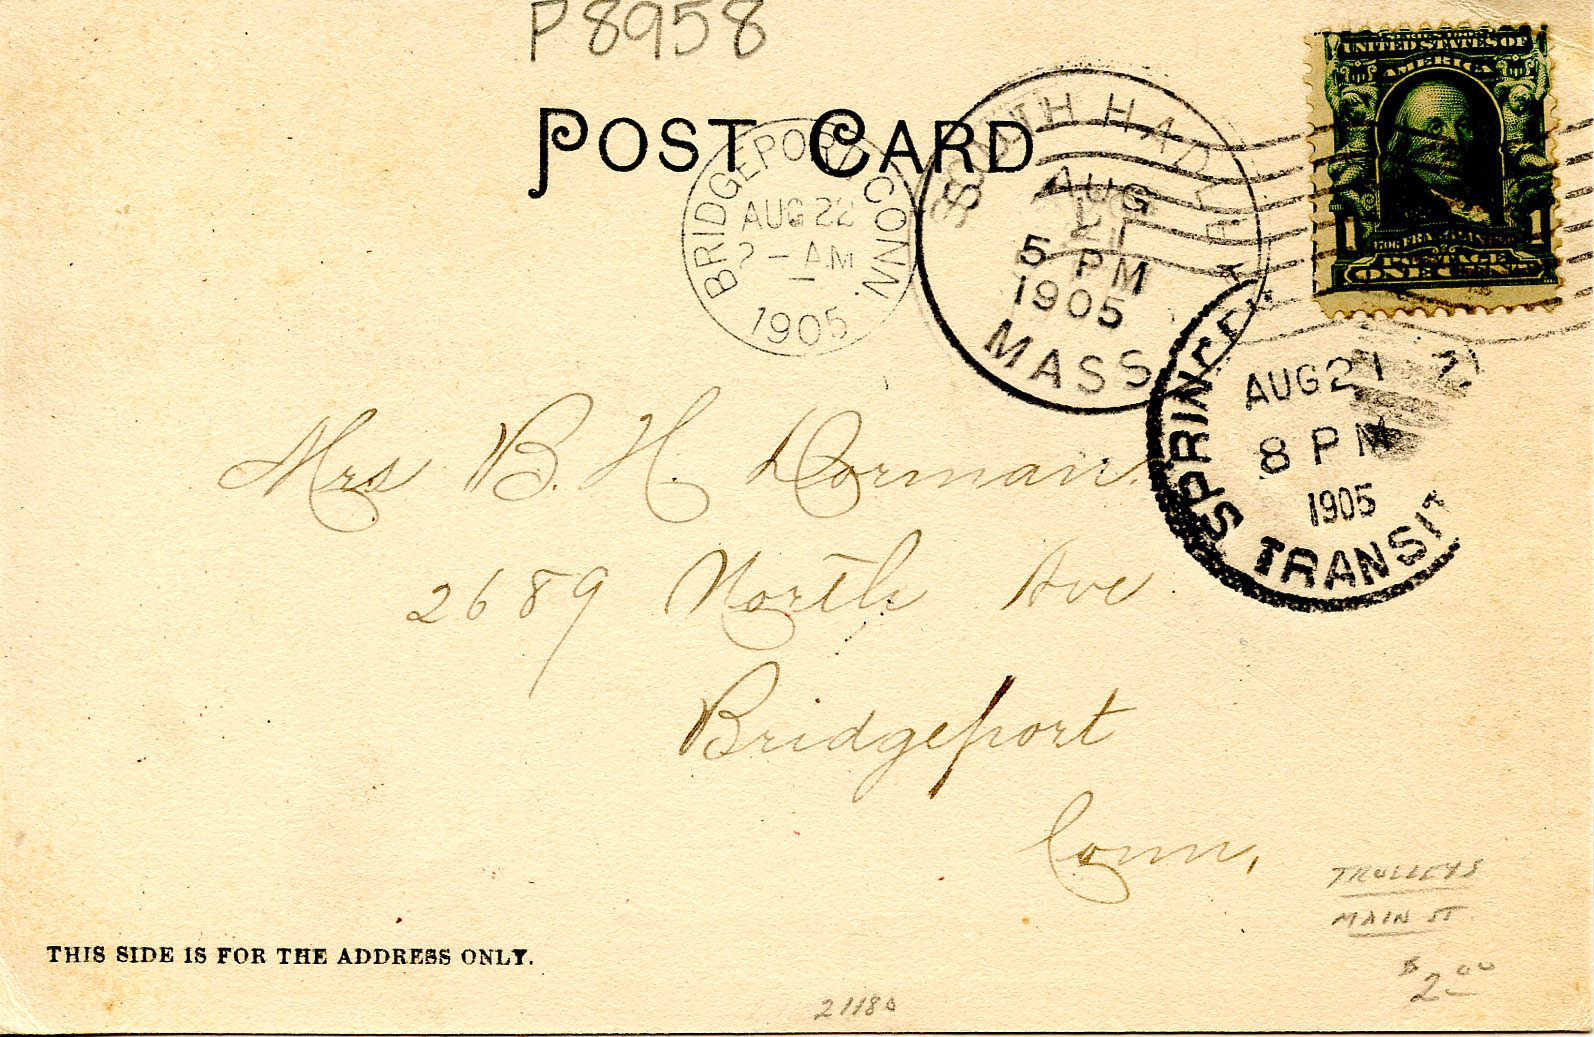 P8958
POST CARD
BRIDGEPORT CONN.
AUG 22
2 - AM
1905
SOUTH HADLEY
AUG
21
5 PM
1905
MASS
UNITED STATES OF
AMERICA
1 1
POSTAGE
ONE CENT
AUG 21
8 PM
1905
TRANSIT
Mrs B. H. Dorman.
2689 North Ave.
Bridgeport
Conn,
TROLLEYS
MAIN ST.
$2.00
THIS SIDE IS FOR THE ADDRESS ONLY.
21180